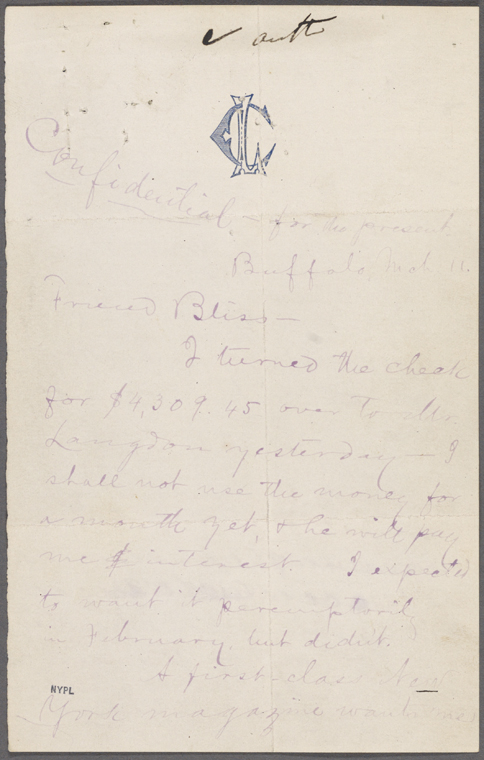 Confidential — for the present.
Buffalo, Mch 11.
Friend Bliss —
I turned the check
for $4,309.45 over to Mr.
Langdon yesterday — I
shall not use the money for
a month yet, & he will pay
me interest. I expected
to want it peremptorily
in February, but didn't.
A first-class New
NYPL
York magazine wants me